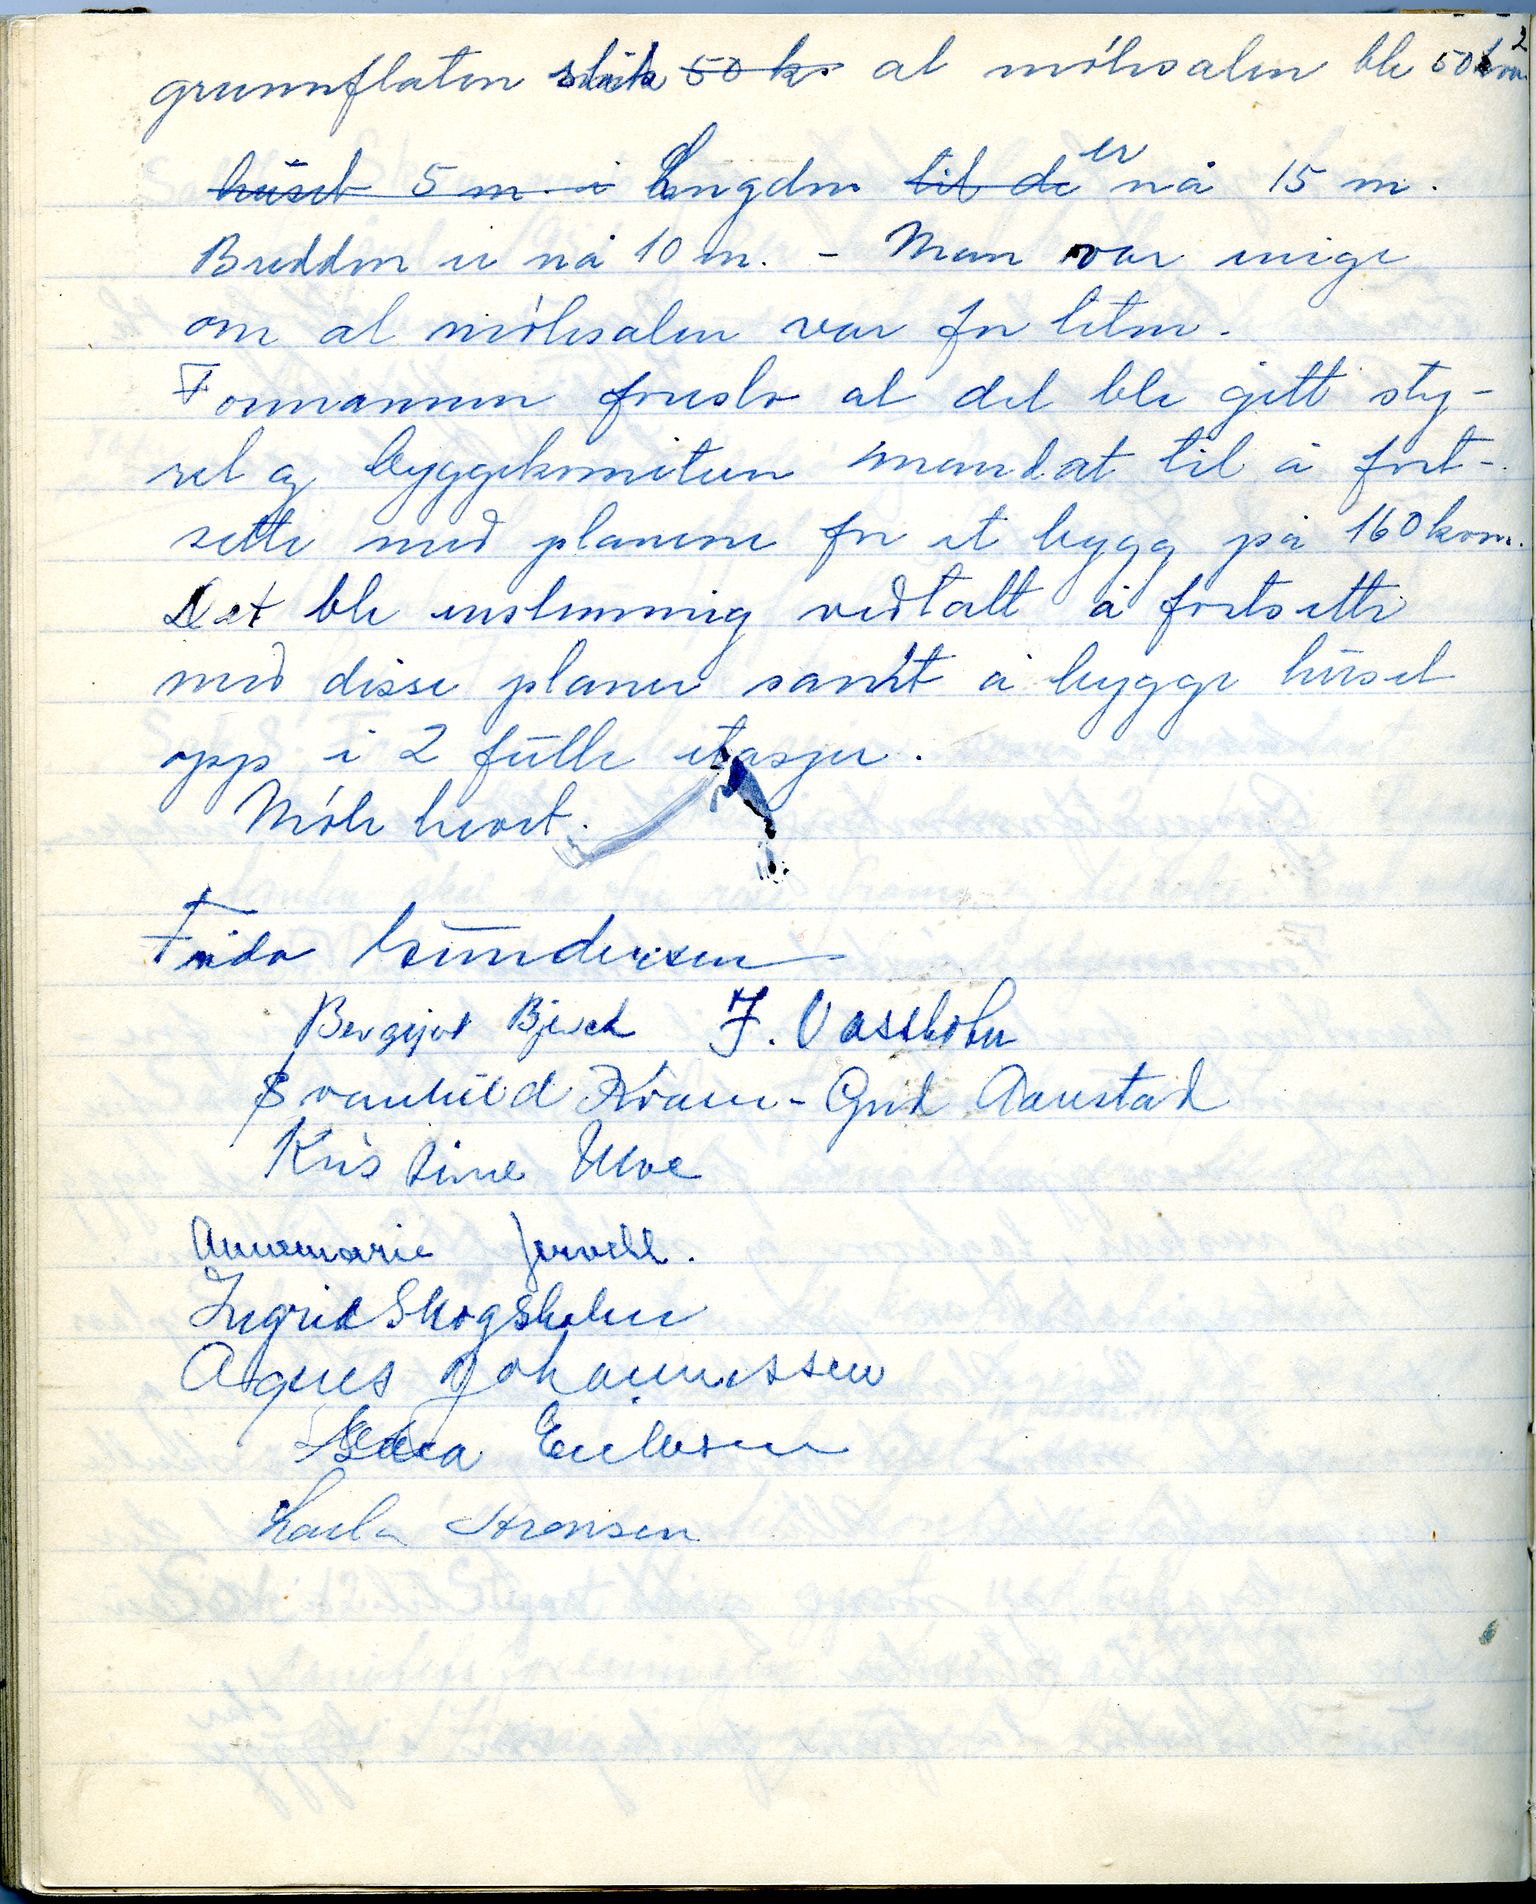 grunnflaten slik 50 k. at møtesalen ble 50 kvm
huset 5 m. i Lengden til de er nå 15 m.
Bredden er nå 10 m. - Man var enige
om at møtesalen var for liten.
Formannen foreslo at det ble gitt sty-
ret og byggekomiteen mandat til å fort-
sette med planene for et bygg på 160 kvm.
Det ble enstemmig vedtatt å fortsette
med disse planer samt å bygge huset
opp i 2 fulle etasjer.
Møte hevet.
Frida Gundersen
Bergljot Bjerck F.
Svanhild Kvam - Gud Aarrestad
Kristine Moe
Annemarie Jervell.
Ingrid Skogsholm
Agnes Johannessen
Eriksen
Laila Aronsen